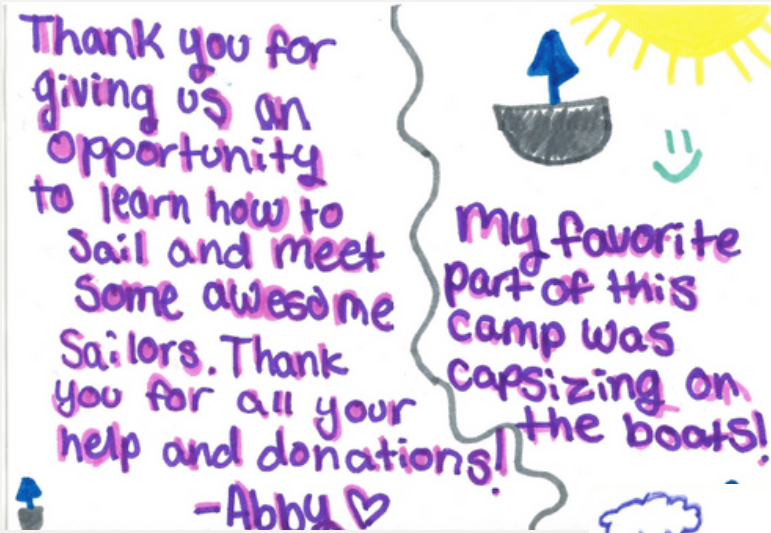 Thank you for
giving us an
opportunity
to learn how to
sail and meet
some awesome
sailors. Thank
you for all your
help and donations!
-Abby ♡
My favorite
part of this
camp was
capsizing on
the boats!